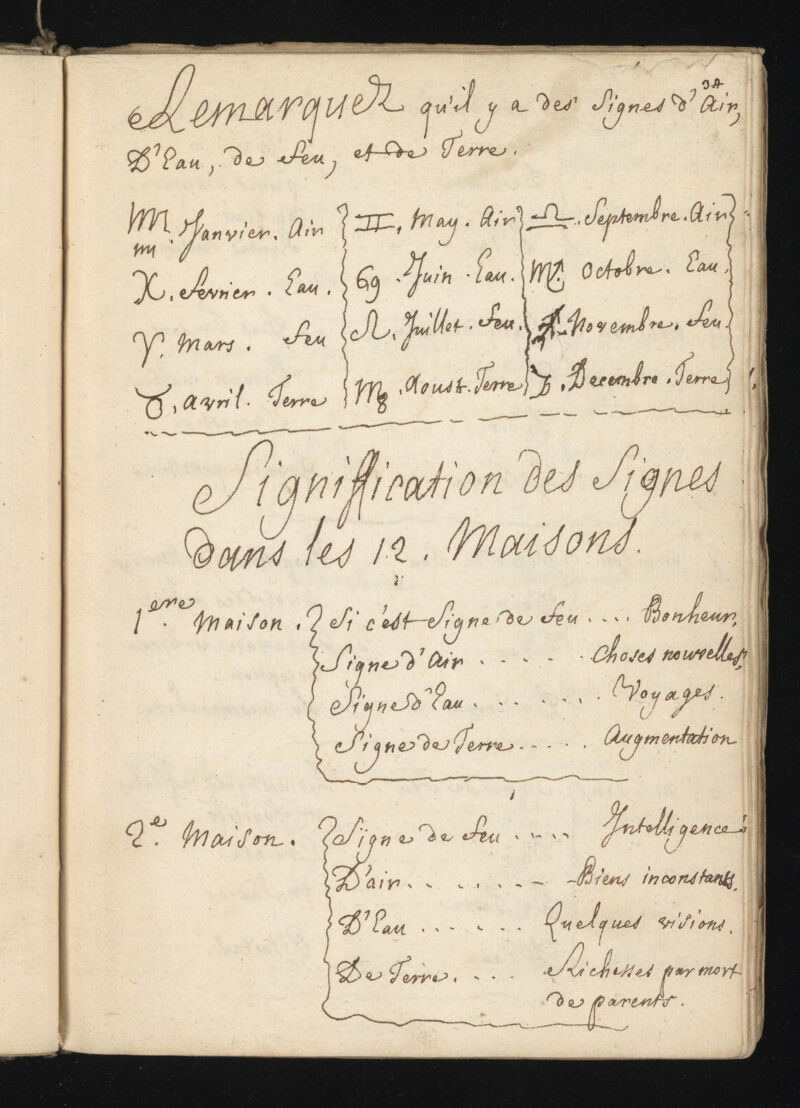 34
Remarquez qu'il y a des Signes d'Air,
D'Eau, de feu, et de Terre.
♒. Janvier. Air ♊. May. Air ♎. Septembre. Air
♓. fevrier. Eau. ♋. Juin. Eau. ♏. Octobre. Eau.
♈. Mars. feu ♌. Juillet. feu. ♐. Novembre. feu.
♉. Avril. Terre ♍. Aoust. Terre ♑. Decembre. Terre
Signification des Signes
dans les 12. Maisons.
1ere. Maison. Si c'est Signe de feu .... Bonheur.
Signe d'Air ..... Choses nouvelles.
Signe d'Eau ...... Voyages.
Signe de Terre ..... Augmentation
2e. Maison. Signe de feu .... Intelligence.
D'air ...... Biens inconstants.
D'Eau ...... Quelques visions.
De Terre .... Richesses par mort
de parents.